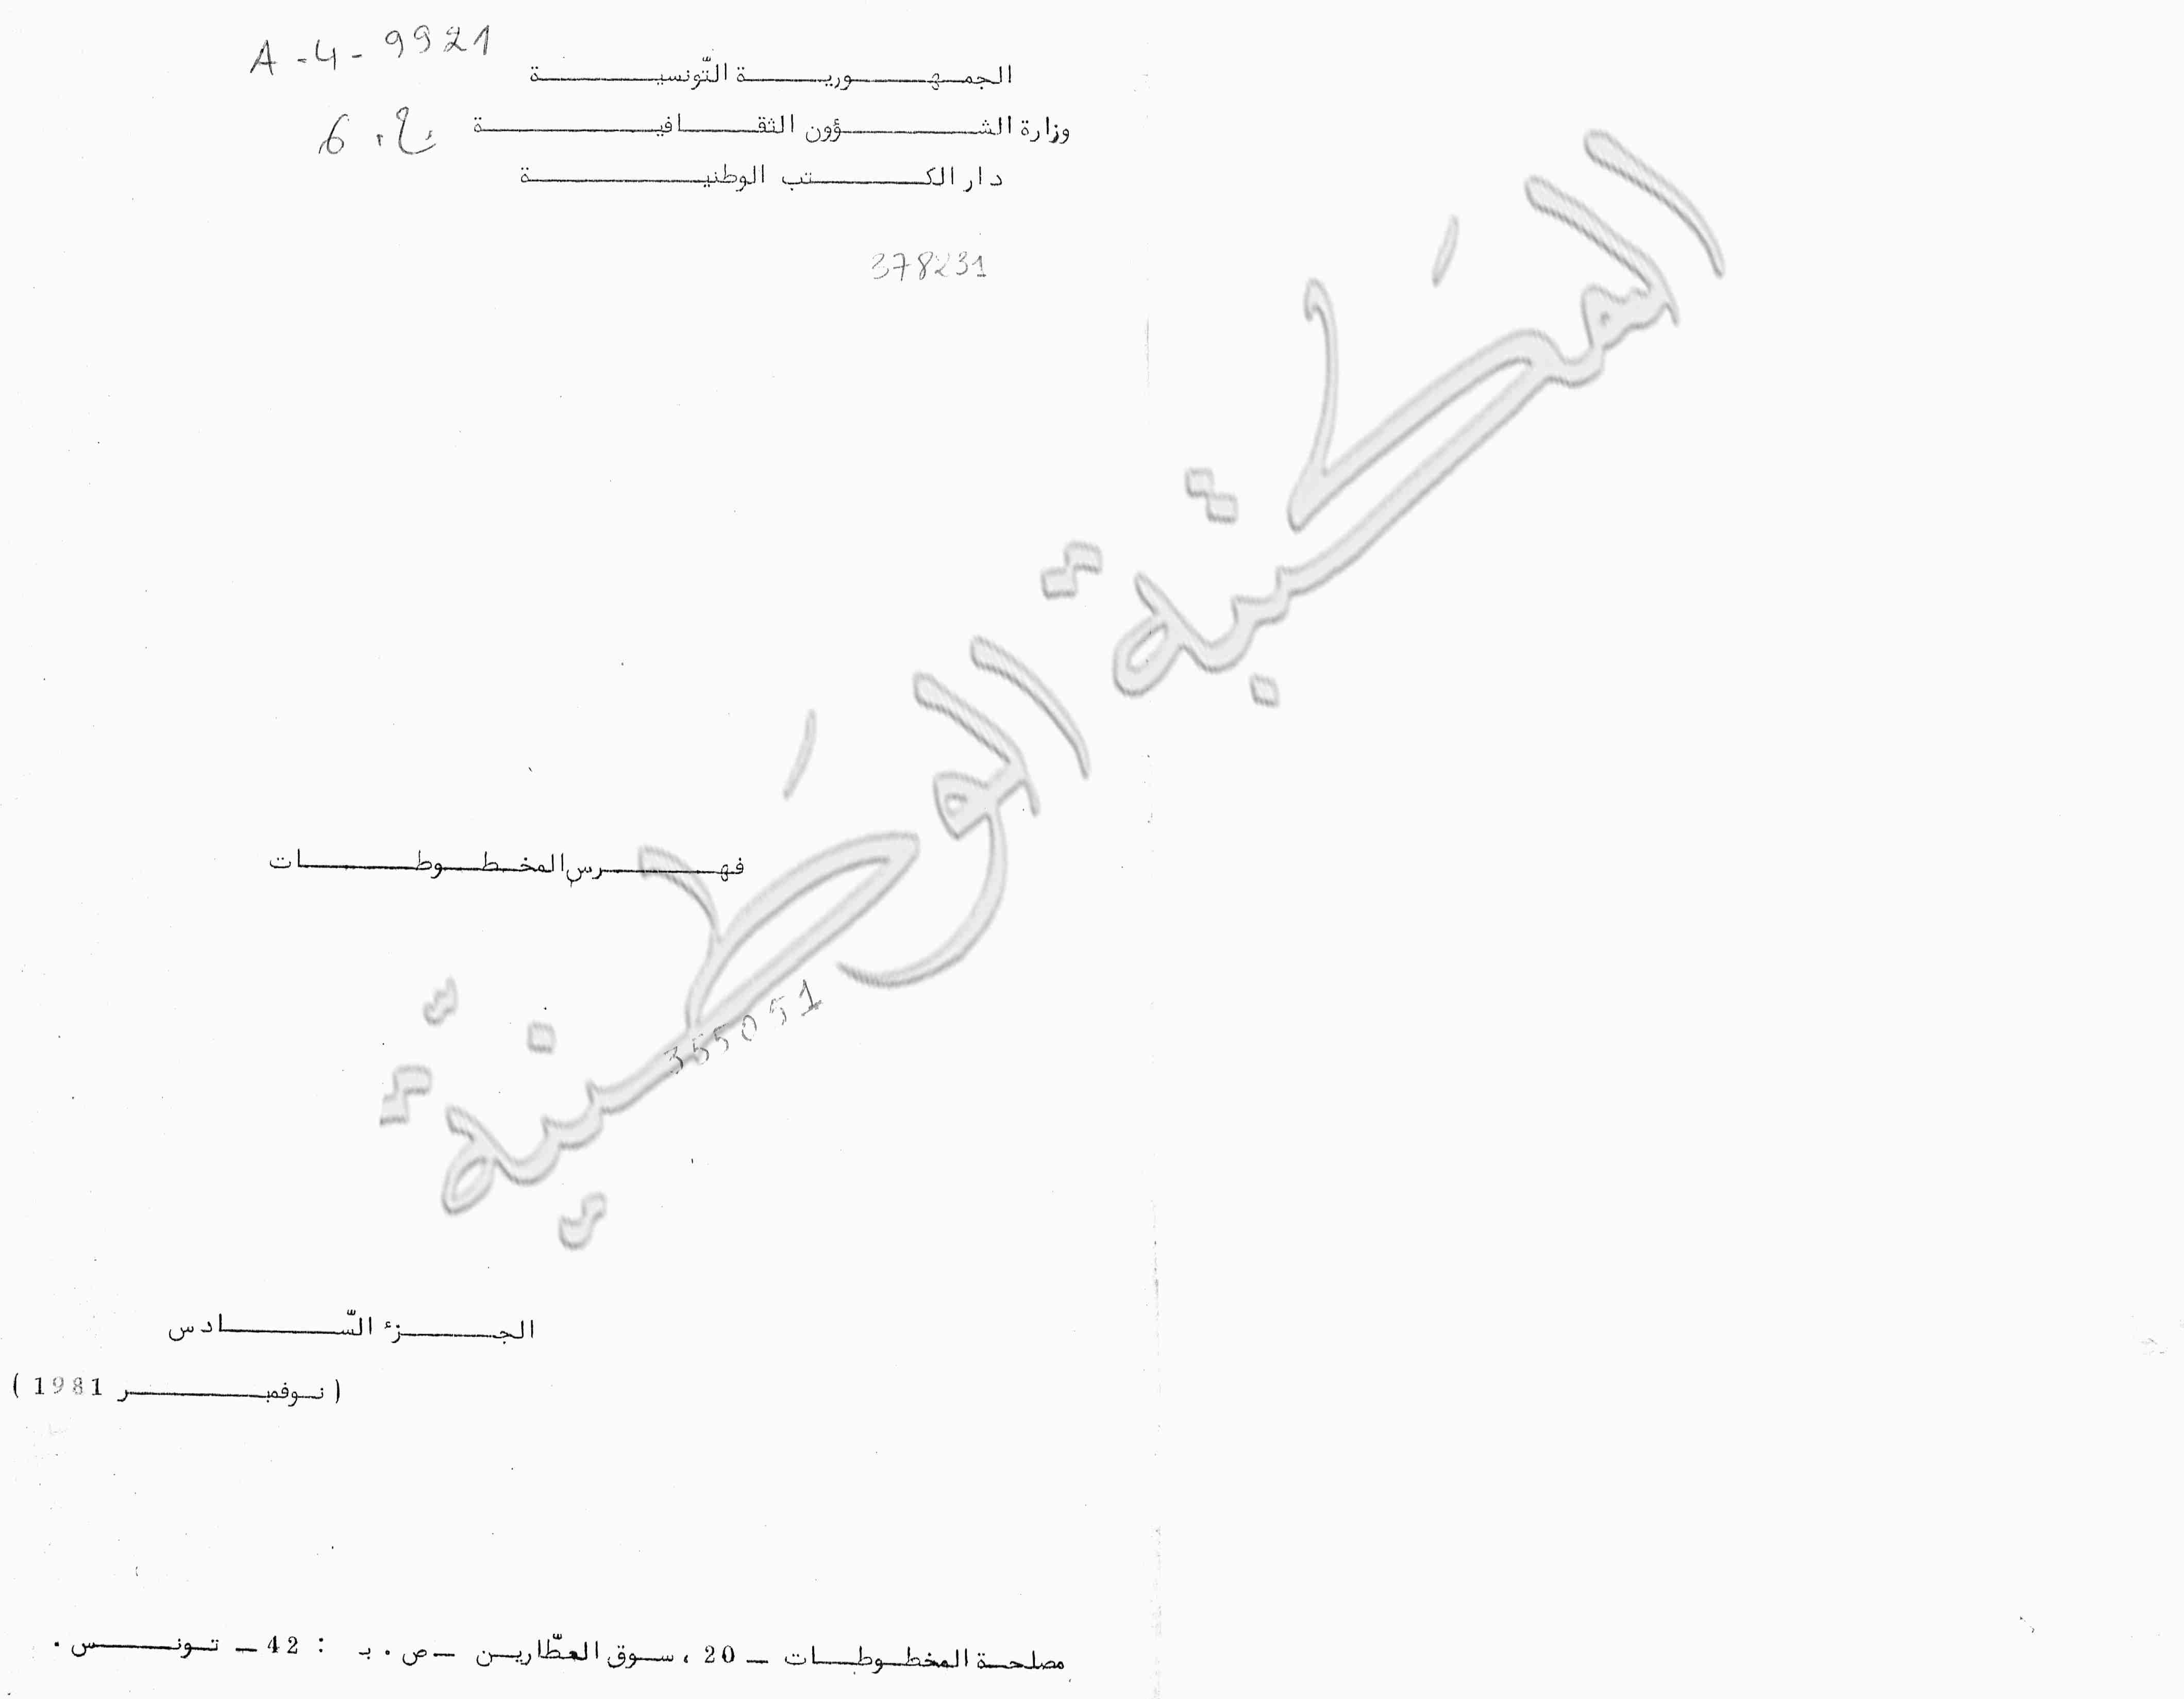 A-4-9921
الجمهورية التّونسية
وزارة الشؤون الثقافية
ج. 6
دار الكتب الوطنية
378231
المكتبة الوطنيّة
فهرس المخطوطات
355051
الجزء السّادس
( نوفمبر 1981 )
مصلحة المخطوطات - 20 ، سوق العطّارين - ص . ب : 42 - تونس .